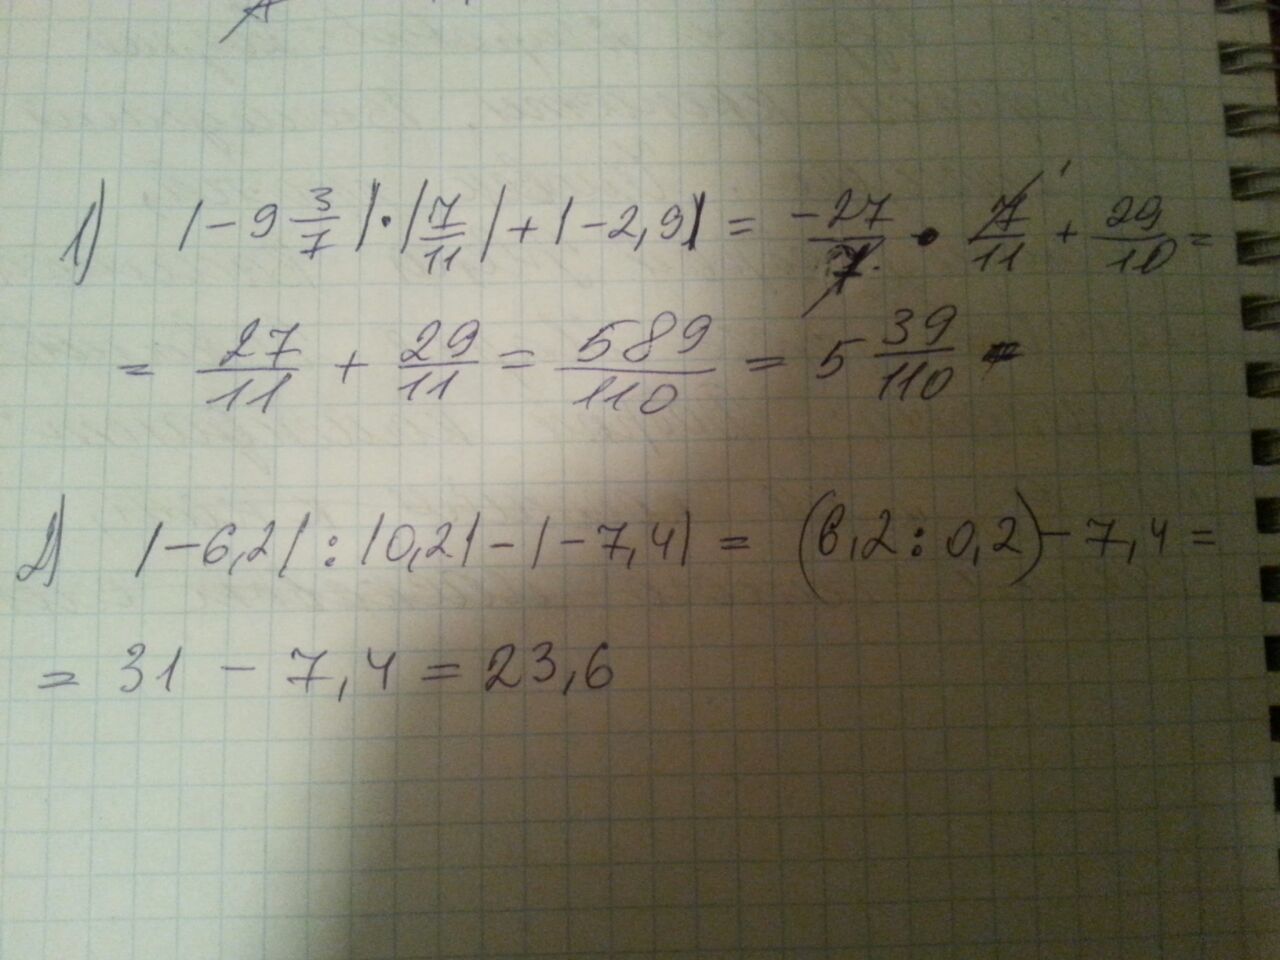 1) |-9 3/7|·|7/11|+|-2,9| = -27/7 · 7/11 + 29/10 =
= 27/11 + 29/11 = 589/110 = 5 39/110
2) |-6,2|:|0,2|-|-7,4| = (6,2:0,2)-7,4 =
= 31 - 7,4 = 23,6